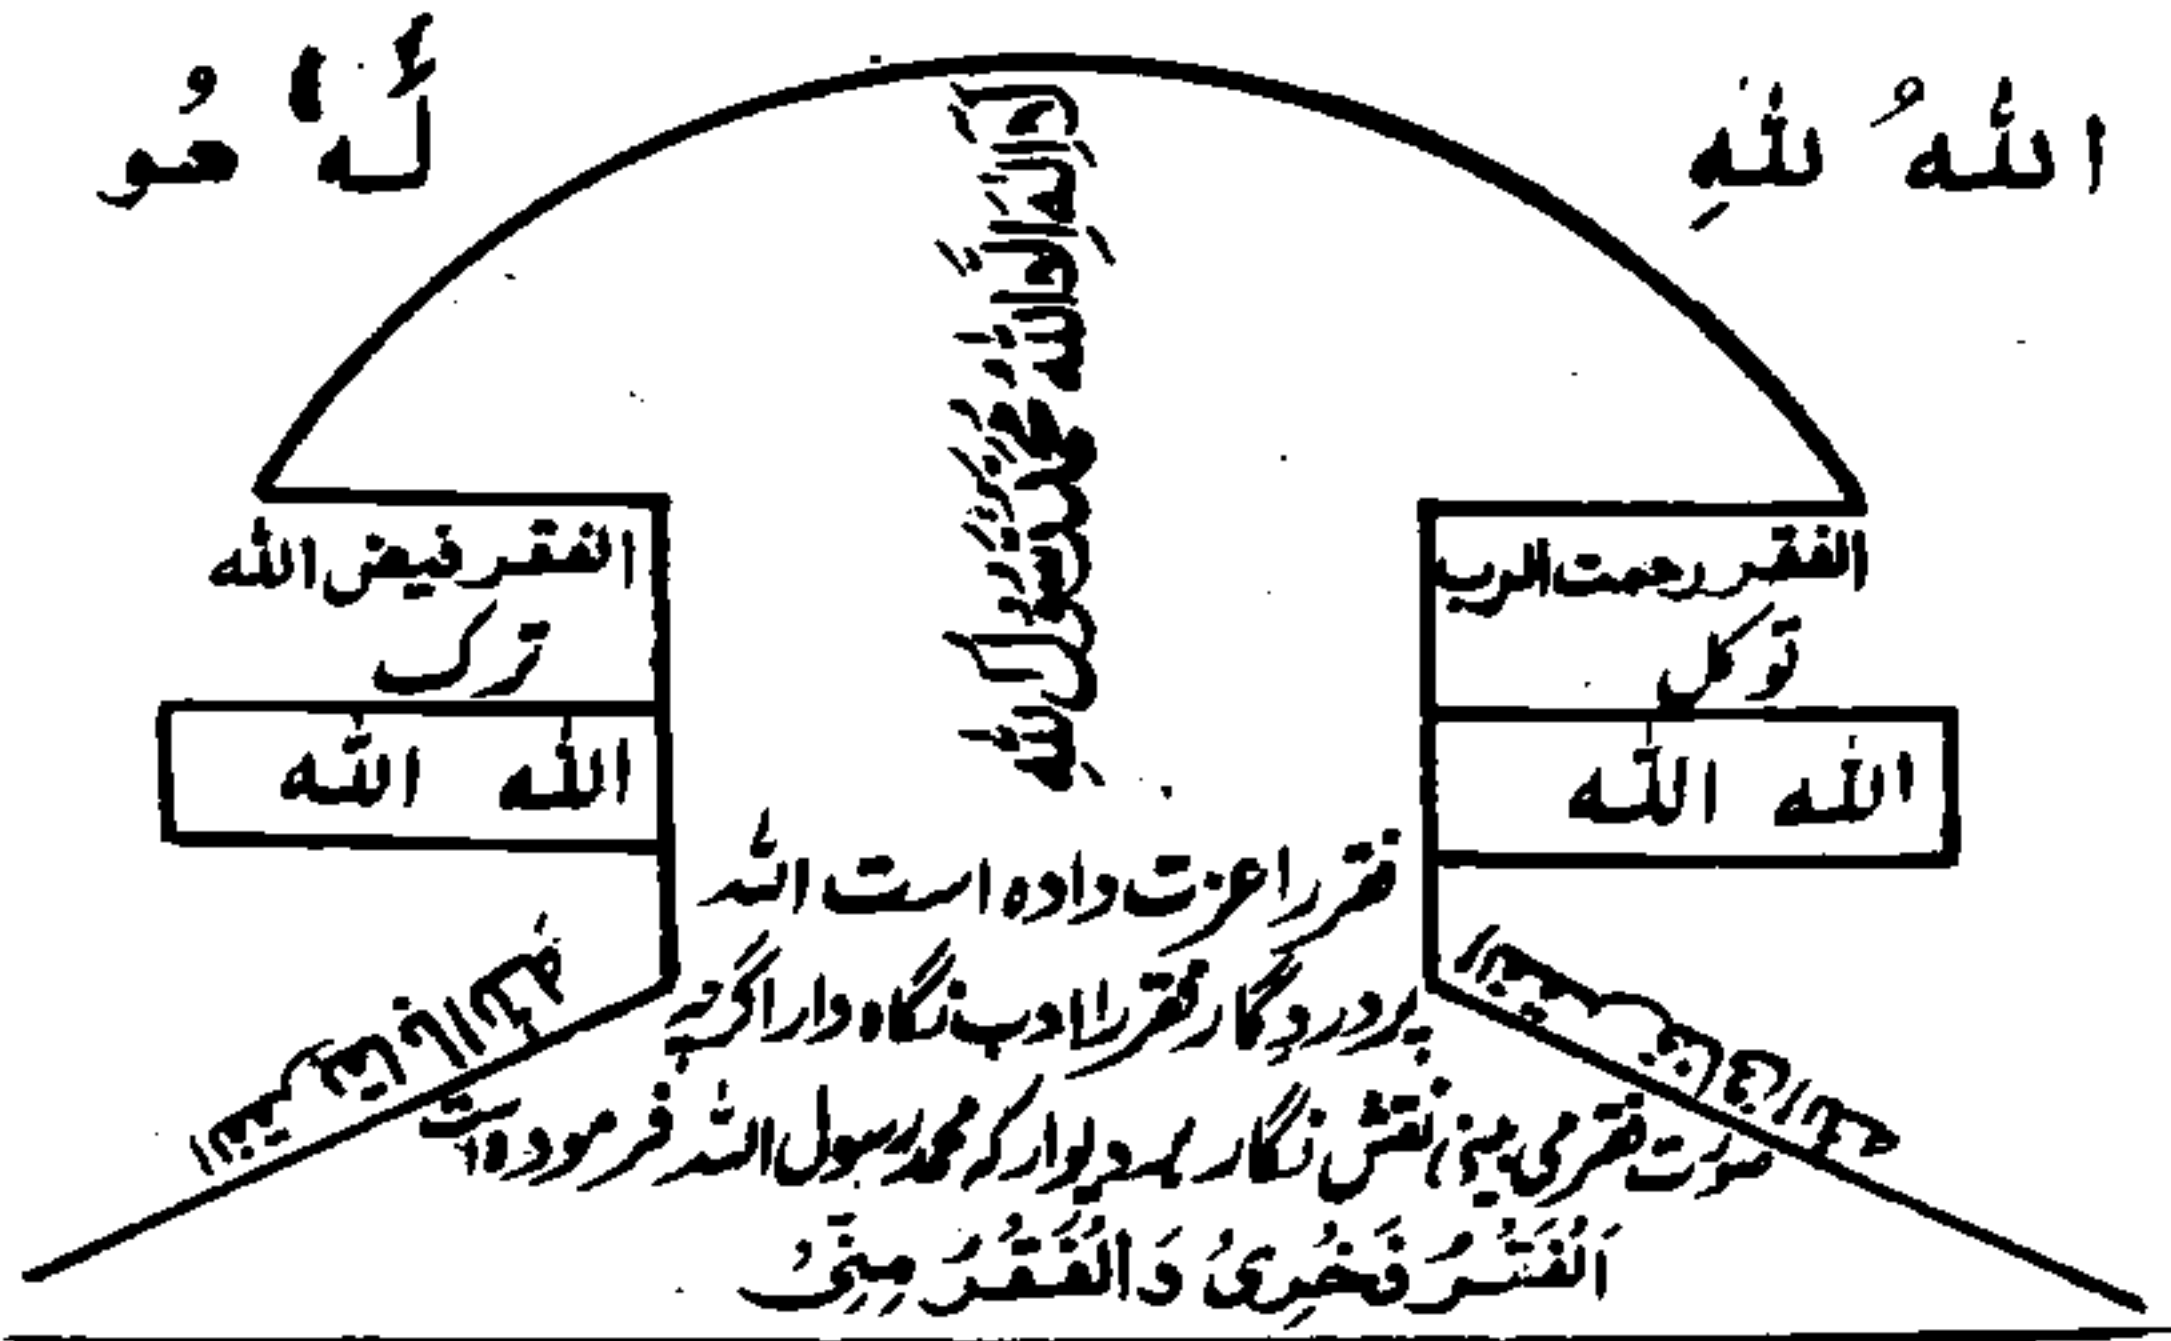 اللهُ للهِ
لَهُ هُو
لَا اِلٰهَ اِلَّا اللهُ مُحَمَّدٌ رَّسُوْلُ اللهِ
الفقر رحمت الرب
توکل
الله الله
الفقر فیض الله
ترک
الله الله
فقر را عزت داده است الله
پروردگار فقر را ادب نگاه دار اگرچه
صورت فقر می بینی نقش نگار بر دیوار که محمد رسول الله فرموده است
اَلْفَقْرُ فَخْرِیْ وَالْفَقْرُ مِنِّیْ